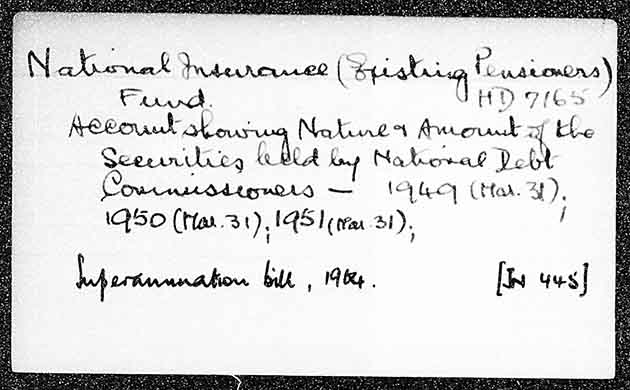 National Insurance (Existing Pensioners)
Fund. HD 7165
Account showing Nature & Amount of the
Securities held by National Debt
Commissioners — 1949 (Mar. 31);
1950 (Mar. 31); 1951 (Mar. 31);
Superannuation bill, 1964. [IN 445]